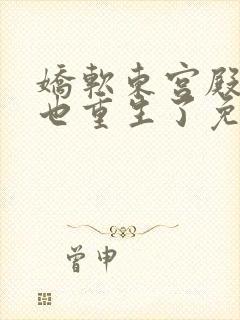 嬌軟東宮殿
也重生了免
曾申